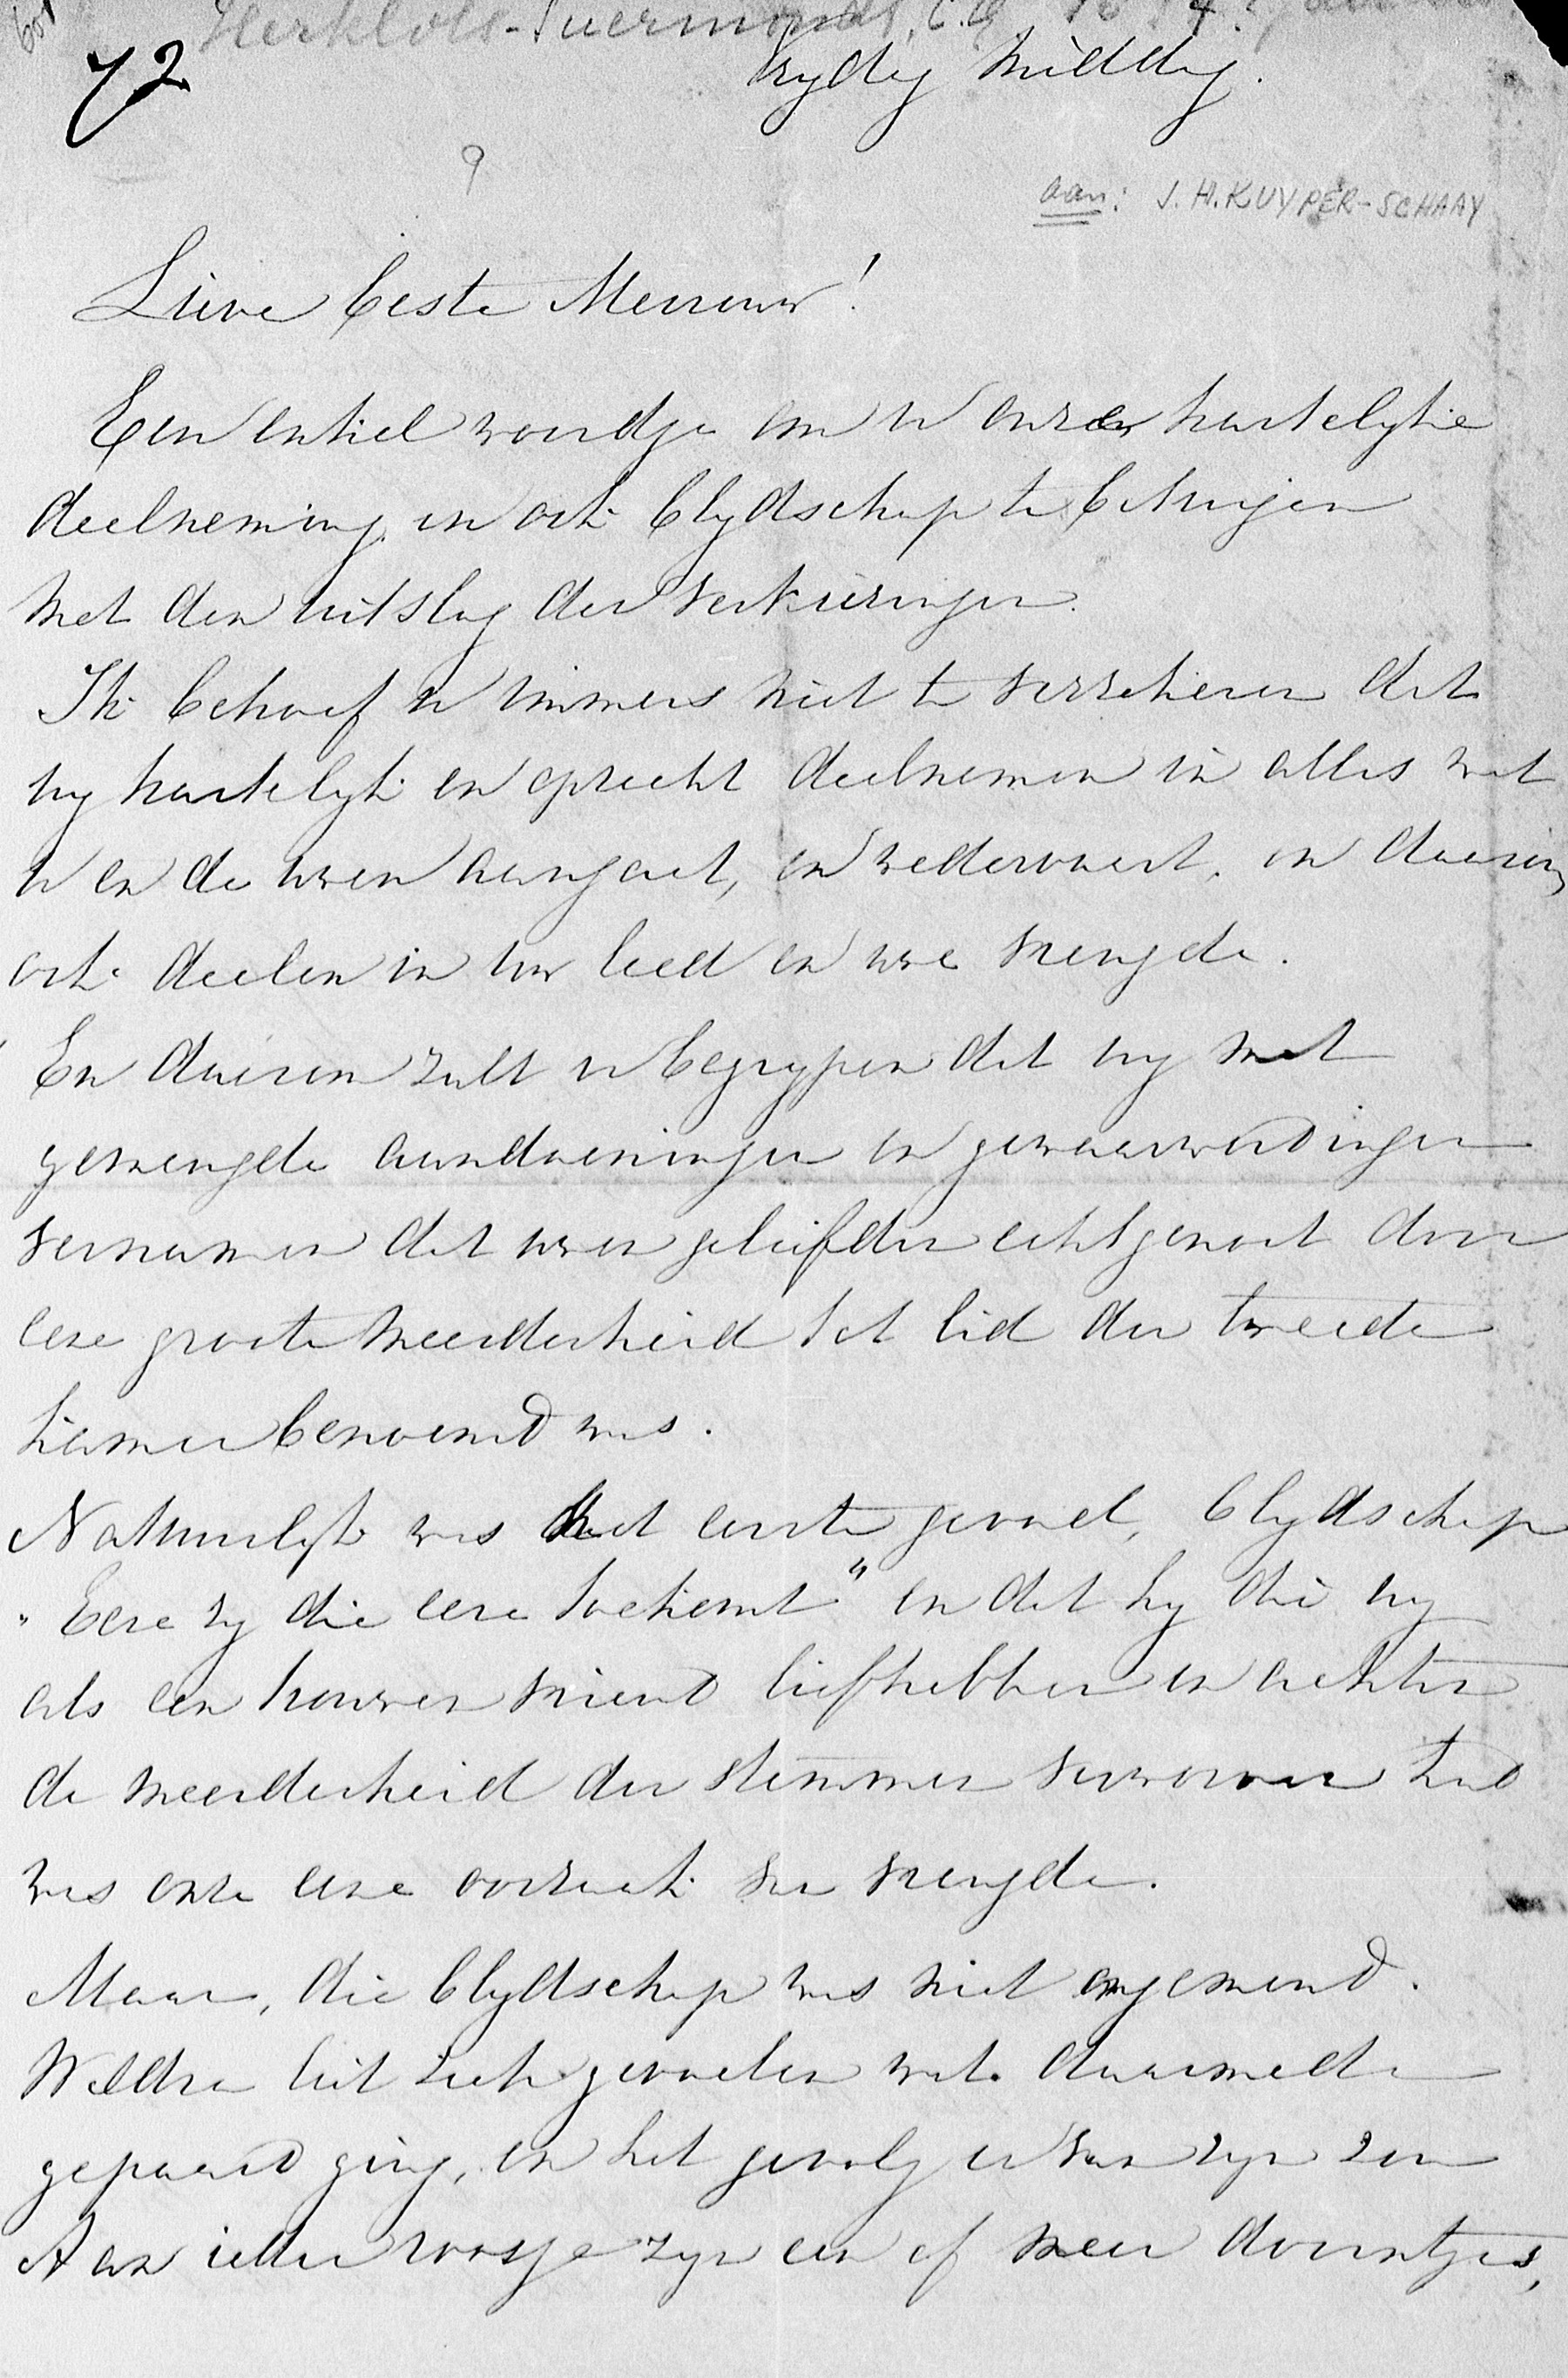 72
Vrydag middag.
9
aan: J.H. KUYPER-SCHAAY
Lieve beste Mevrouw!
Een enkel woordje om U onze hartelyke
deelneming en ook blydschap te betuigen
met den uitslag der verkiezingen.
Ik behoef U immers niet te verzekeren dat
wy hartelyk en oprecht deelnemen in alles wat
U en de uwen aangaat, en wedervaart, en daarin
ook deelen in uw leed en uwe vreugde.
En daarom zult U begrypen dat wy met
gemengde aandoeningen en gewaarwordingen
vernamen dat uwen geliefden echtgenoot door
eene groote meerderheid tot lid der tweede
kamer benoemd was.
Natuurlyk was het eerste gevoel, blydschap
"Eere zy die eere toekomt" en dat hy die wy
als een trouwen vriend liefhebben en achten
de meerderheid der stemmen verworven had
was onze eene oorzaak van vreugde.
Maar, die blydschap was niet ongemend.
Weldra liet zich gevoelen wat daarmede
gepaard ging, en het gevolg er van zyn zou
Aan ieder roosje zyn een of meer doorntjes,